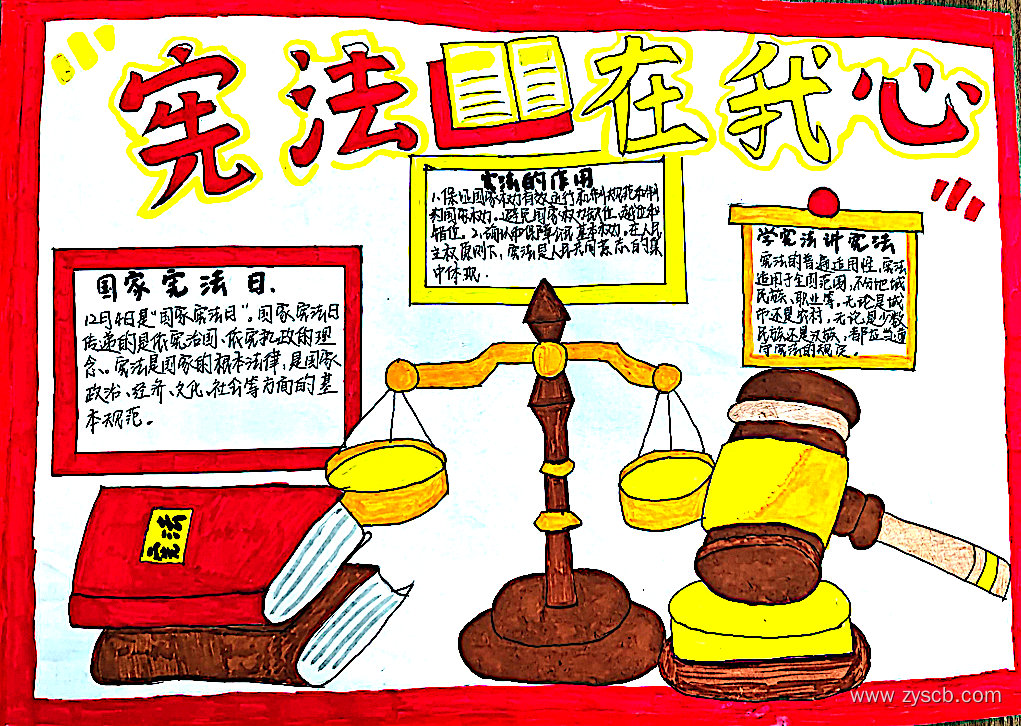 宪法在我心
国家宪法日.
12月4日是“国家宪法日”。国家宪法日
传递的是依宪治国、依宪执政的理
念。宪法是国家的根本法律,是国家
政治、经济、文化、社会等方面的基
本规范。
宪法的作用
1.保证国家权力有效运行和制规范和制
约国家权力,避免国家权力缺位、越位和
错位。2.确认和保障公民基本权力。在人民
主权原则下,宪法是人民共同意志的集
中体现.
学宪法讲宪法
宪法的普遍适用性,宪法
适用于全国范围,不分地域
民族、职业等,无论是城
市还是农村,无论是少数
民族还是汉族,都应当遵
守宪法的规定。
宪法
www.zyscb.com